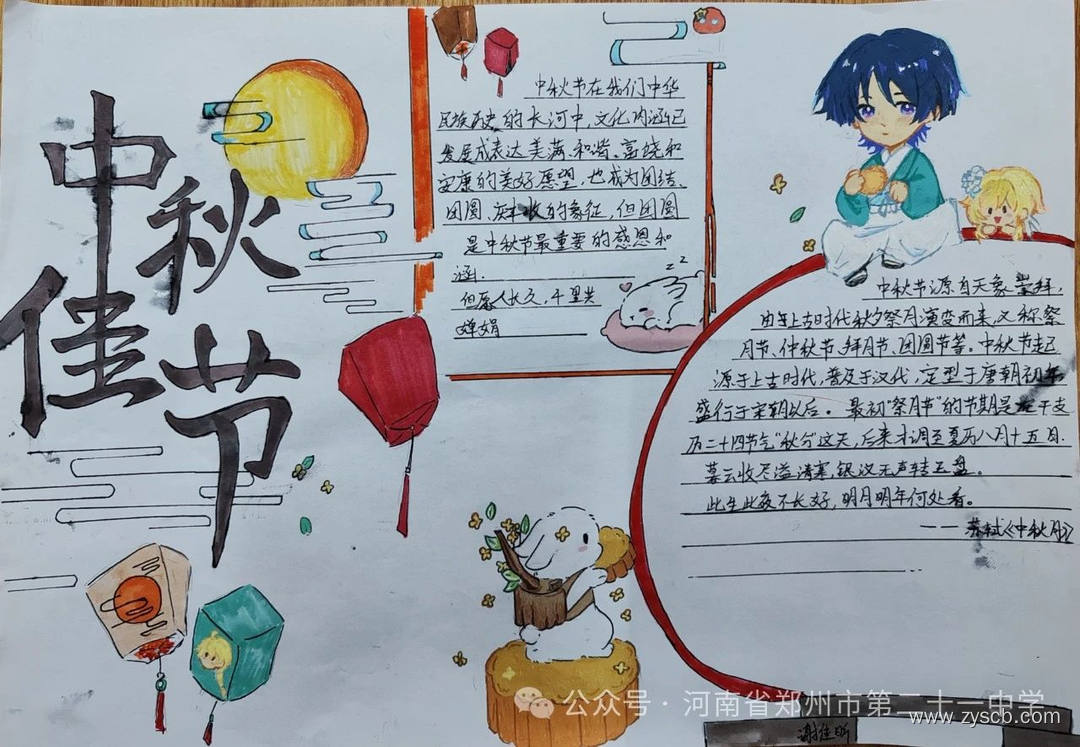 中秋佳节
中秋节在我们中华
民族历史的长河中,文化内涵已
发展成表达美满、和谐、富饶和
安康的美好愿望,也成为团结、
团圆、庆丰收的象征,但团圆
是中秋节最重要的感恩和
涵.
但愿人长久,千里共
婵娟
zz
中秋节源自天象崇拜,
由于上古时代秋夕祭月演变而来,又称祭
月节、仲秋节、拜月节、团圆节等。中秋节起
源于上古时代,普及于汉代,定型于唐朝初年
盛行于宋朝以后。最初“祭月节”的节期是在干支
历二十四节气“秋分”这天,后来才调至夏历八月十五日.
暮云收尽溢清寒,银汉无声转玉盘。
此生此夜不长好,明月明年何处看。
——苏轼《中秋月》
公众号·河南省郑州市第二十一中学
www.zyscb.com